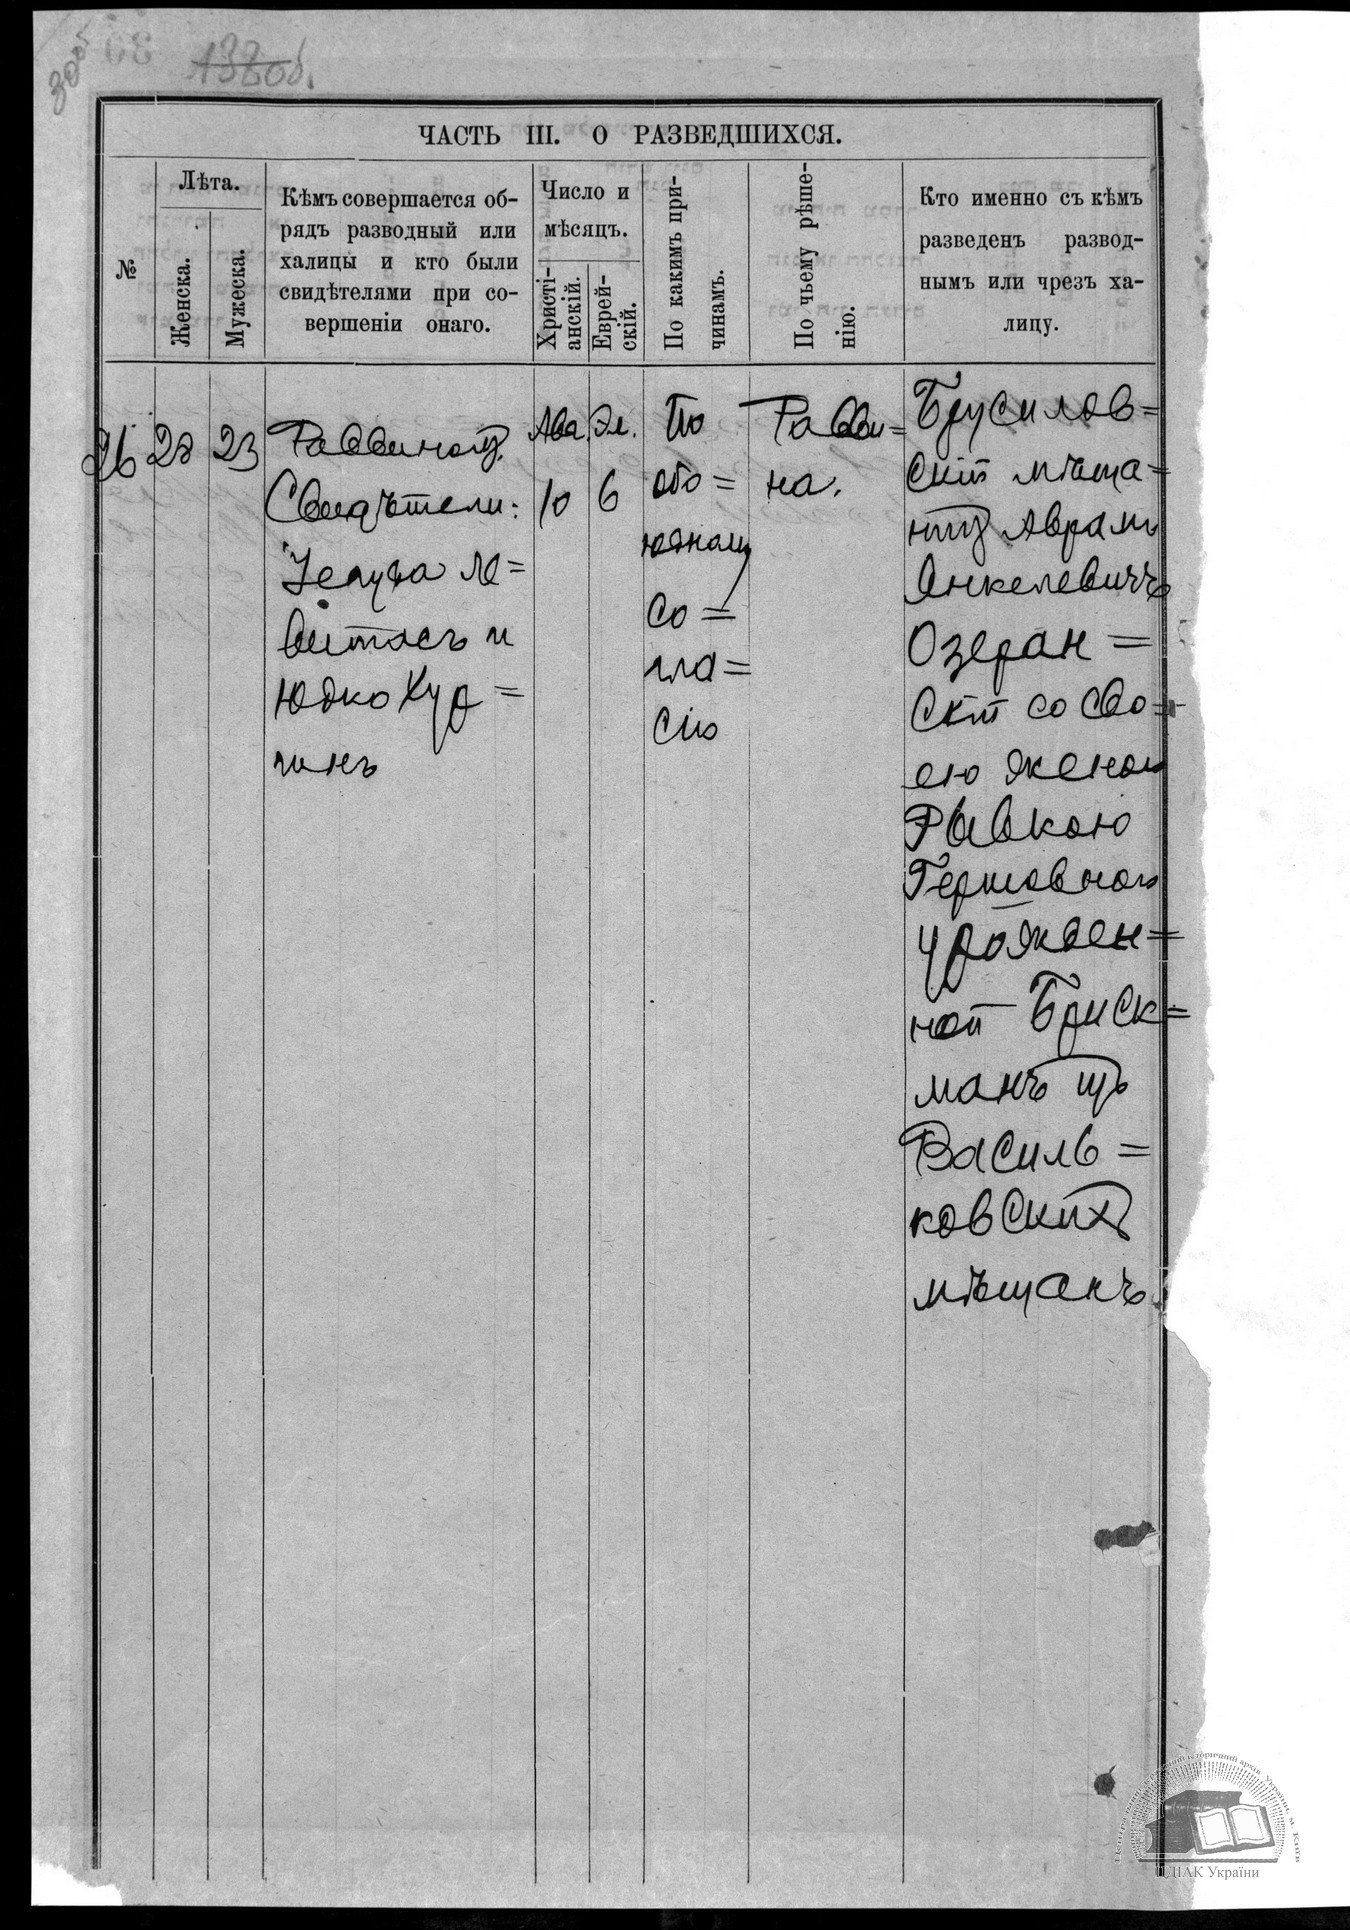 30об
138об.
ЧАСТЬ III. О РАЗВЕДШИХСЯ.
№
Лѣта.
Женска.
Мужеска.
Кѣмъ совершается об-
рядъ разводный или
халицы и кто были
свидѣтелями при со-
вершеніи онаго.
Число и
мѣсяцъ.
Христі-
анскій.
Еврей-
скій.
По какимъ при-
чинамъ.
По чьему рѣше-
нію.
Кто именно съ кѣмъ
разведенъ развод-
нымъ или чрезъ ха-
лицу.
26
28
23
Раввиномъ.
Свидѣтели:
Ле=
витасъ и
Юдко Хур=
гинъ
Авг.
10
Эл.
6
По
обо=
юдному
со=
гла=
сію
Равви=
на.
Брусилов=
скій мѣща=
нинъ Аврамъ
Янкелевичъ
Озеран=
скій со сво=
ею женою
Рывкою
Гершовною
урожден=
ной Бриск=
манъ изъ
Василь=
ковскихъ
мѣщанъ
ЦДІАК України